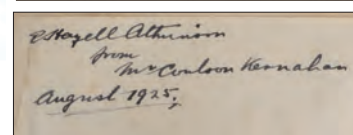 E Hazell Atkinson
from
Mr Coulson Kernahan
August 1925.